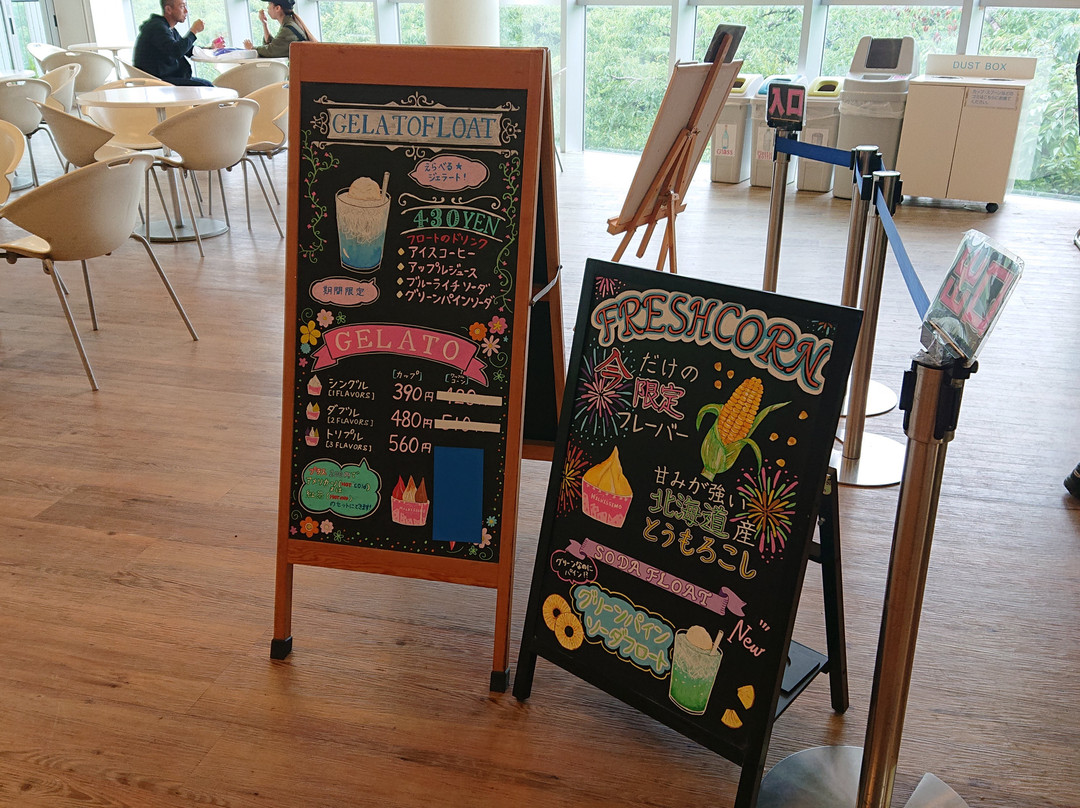 GELATOFLOAT
えらべる★
ジェラート!
430YEN
フロートのドリンク
アイスコーヒー
アップルジュース
ブルーライチソーダ
グリーンパインソーダ
期間限定
GELATO
[カップ]
シングル
[1FLAVORS]
390円
ダブル
[2FLAVORS]
480円
トリプル
[3FLAVORS]
560円
FRESHCORN
今だけの
限定
フレーバー
甘みが強い
北海道産
とうもろこし
SODA FLOAT
グリーンなのに
パイン!?
グリーンパイン
ソーダフロート
New
入口
DUST BOX